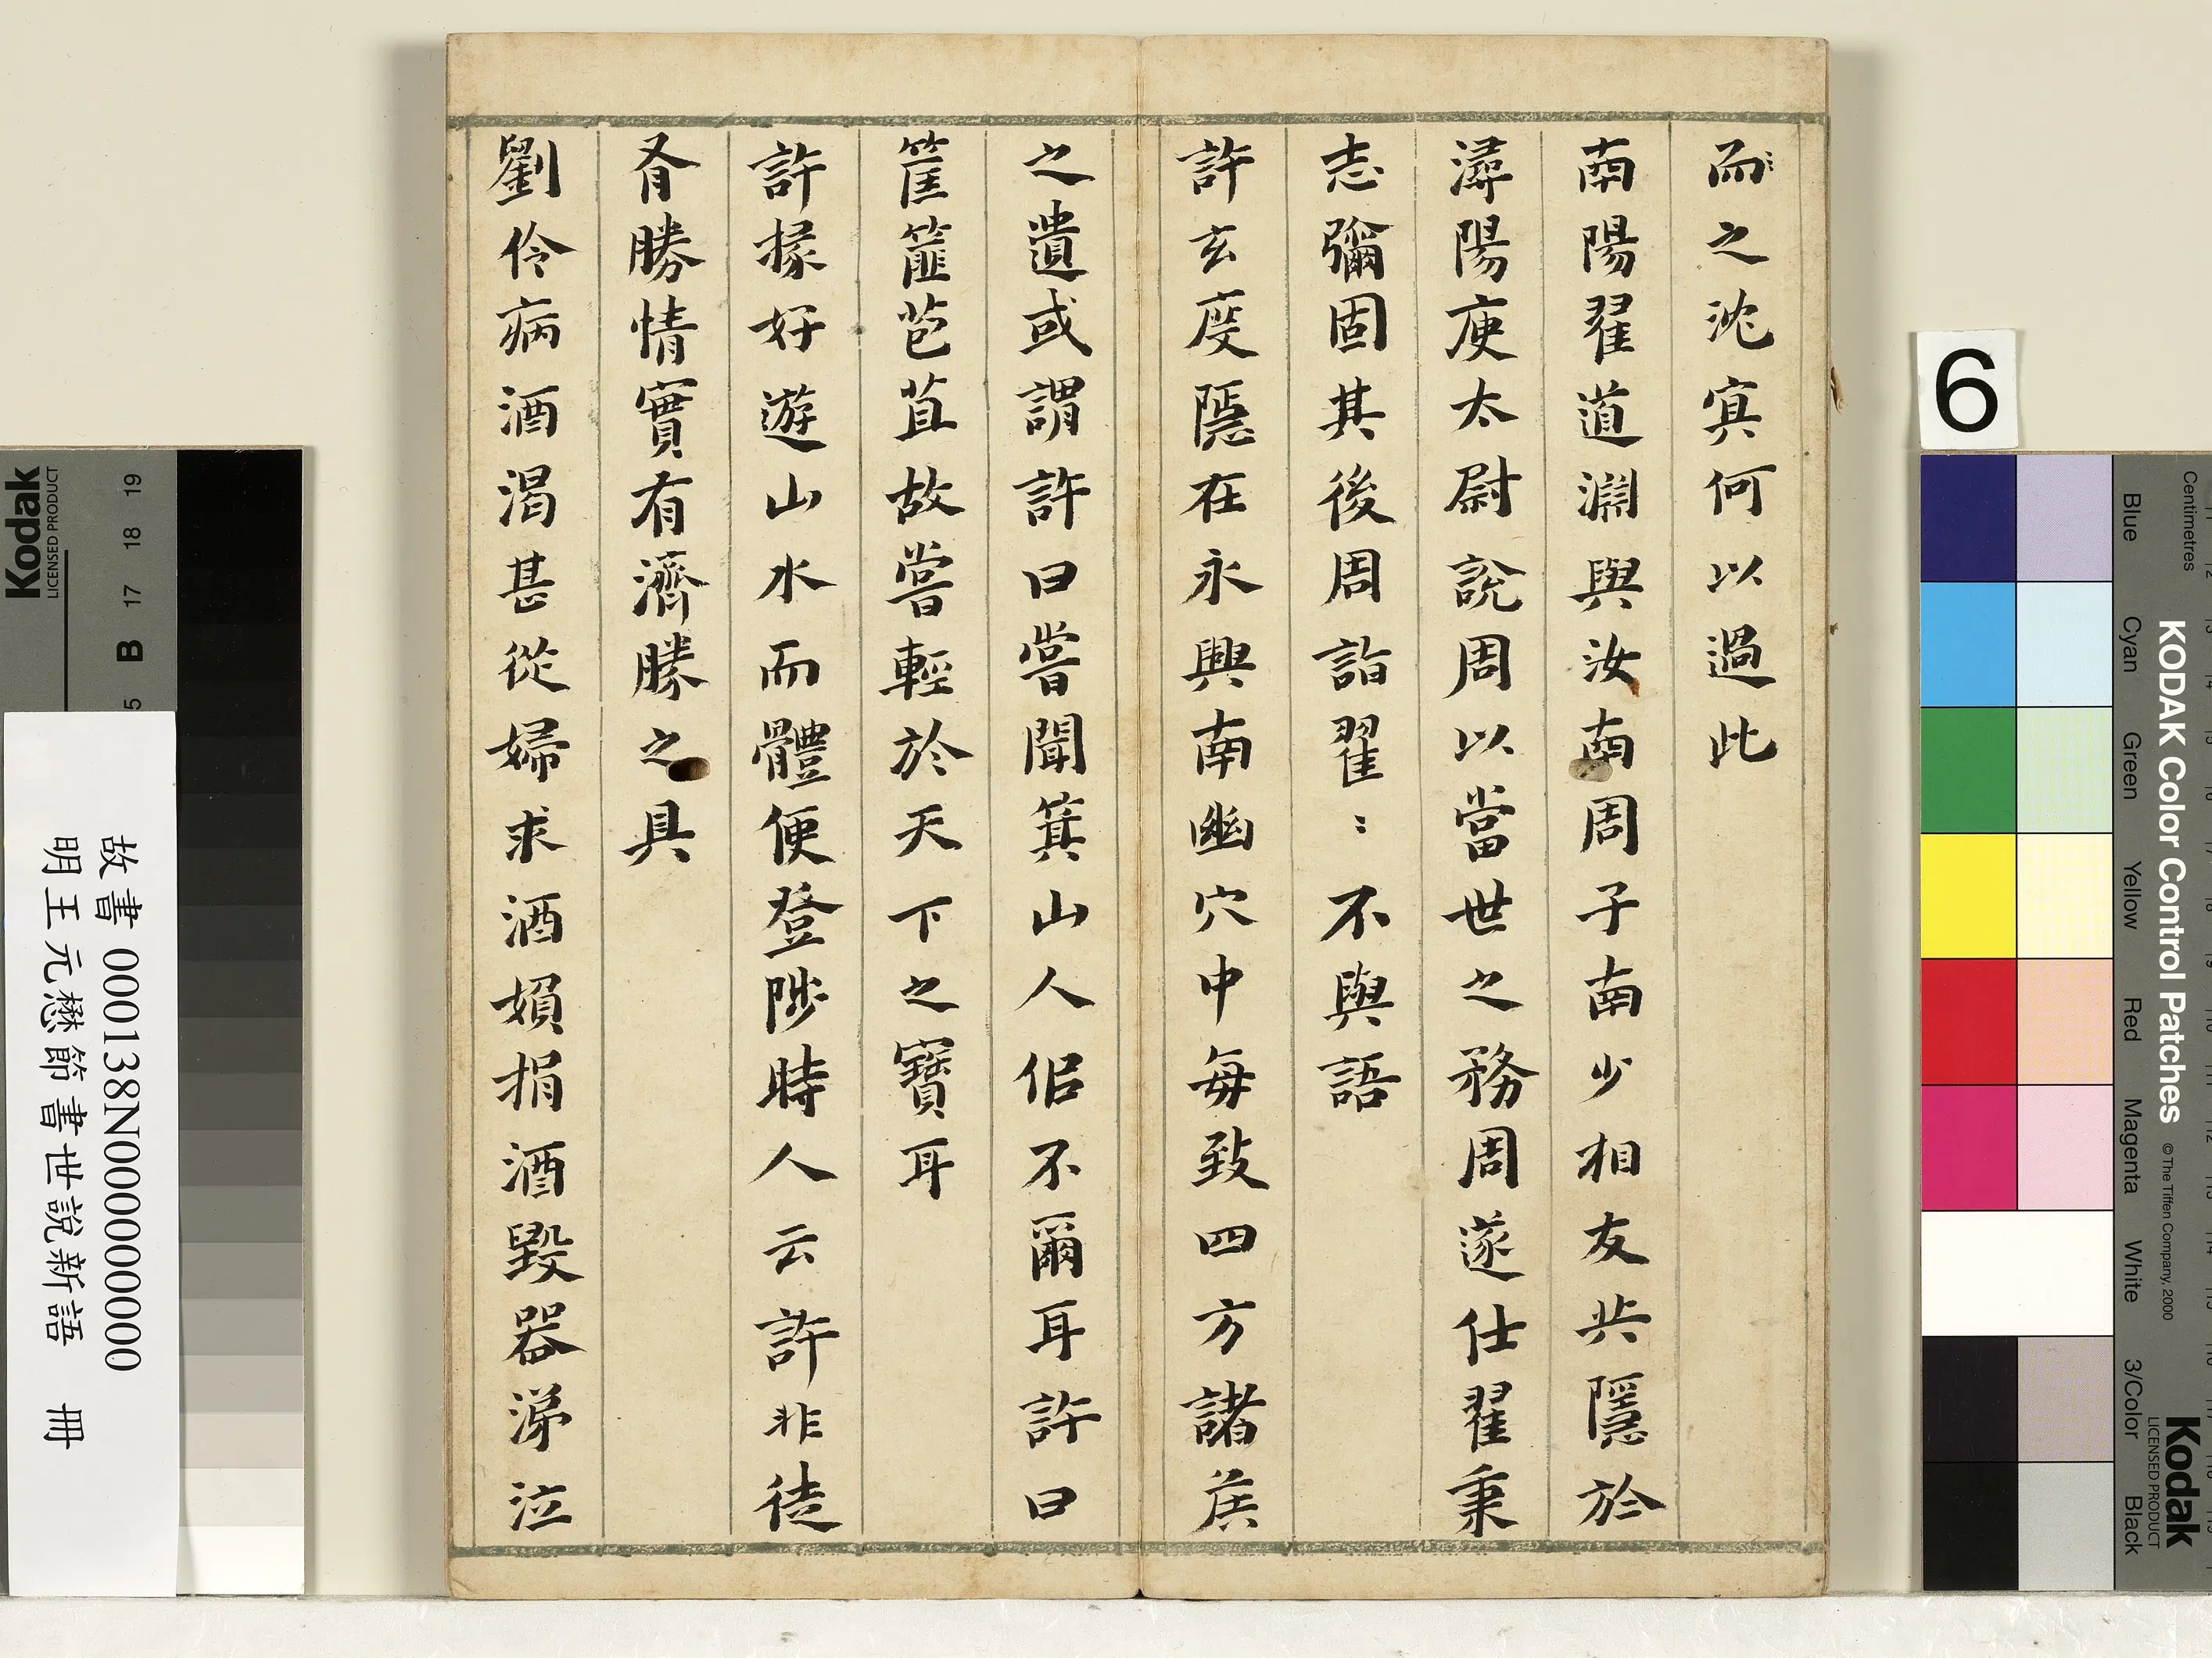 而之沈㝠何以過此
南陽翟道淵與汝南周子南少相友共隱於
潯陽庾太尉說周以當世之務周遂仕翟秉
志彌固其後周詣翟〻不與語
許玄度隱在永興南幽穴中每致四方諸侯
之遺或謂許曰嘗聞箕山人佀不爾耳許曰
筐篚苞苴故嘗輕於天下之寶耳
許掾好遊山水而體便登陟時人云許非徒
有勝情實有濟勝之具
劉伶病酒渴甚從婦求酒媍捐酒毀器涕泣
6
Centimetres
KODAK Color Control Patches
© The Tiffen Company, 2000
Kodak
LICENSED PRODUCT
Blue
Cyan
Green
Yellow
Red
Magenta
White
3/Color
Black
Kodak
LICENSED PRODUCT
B 17 18 19
故書 000138N000000000
明王元懋節書世說新語 冊